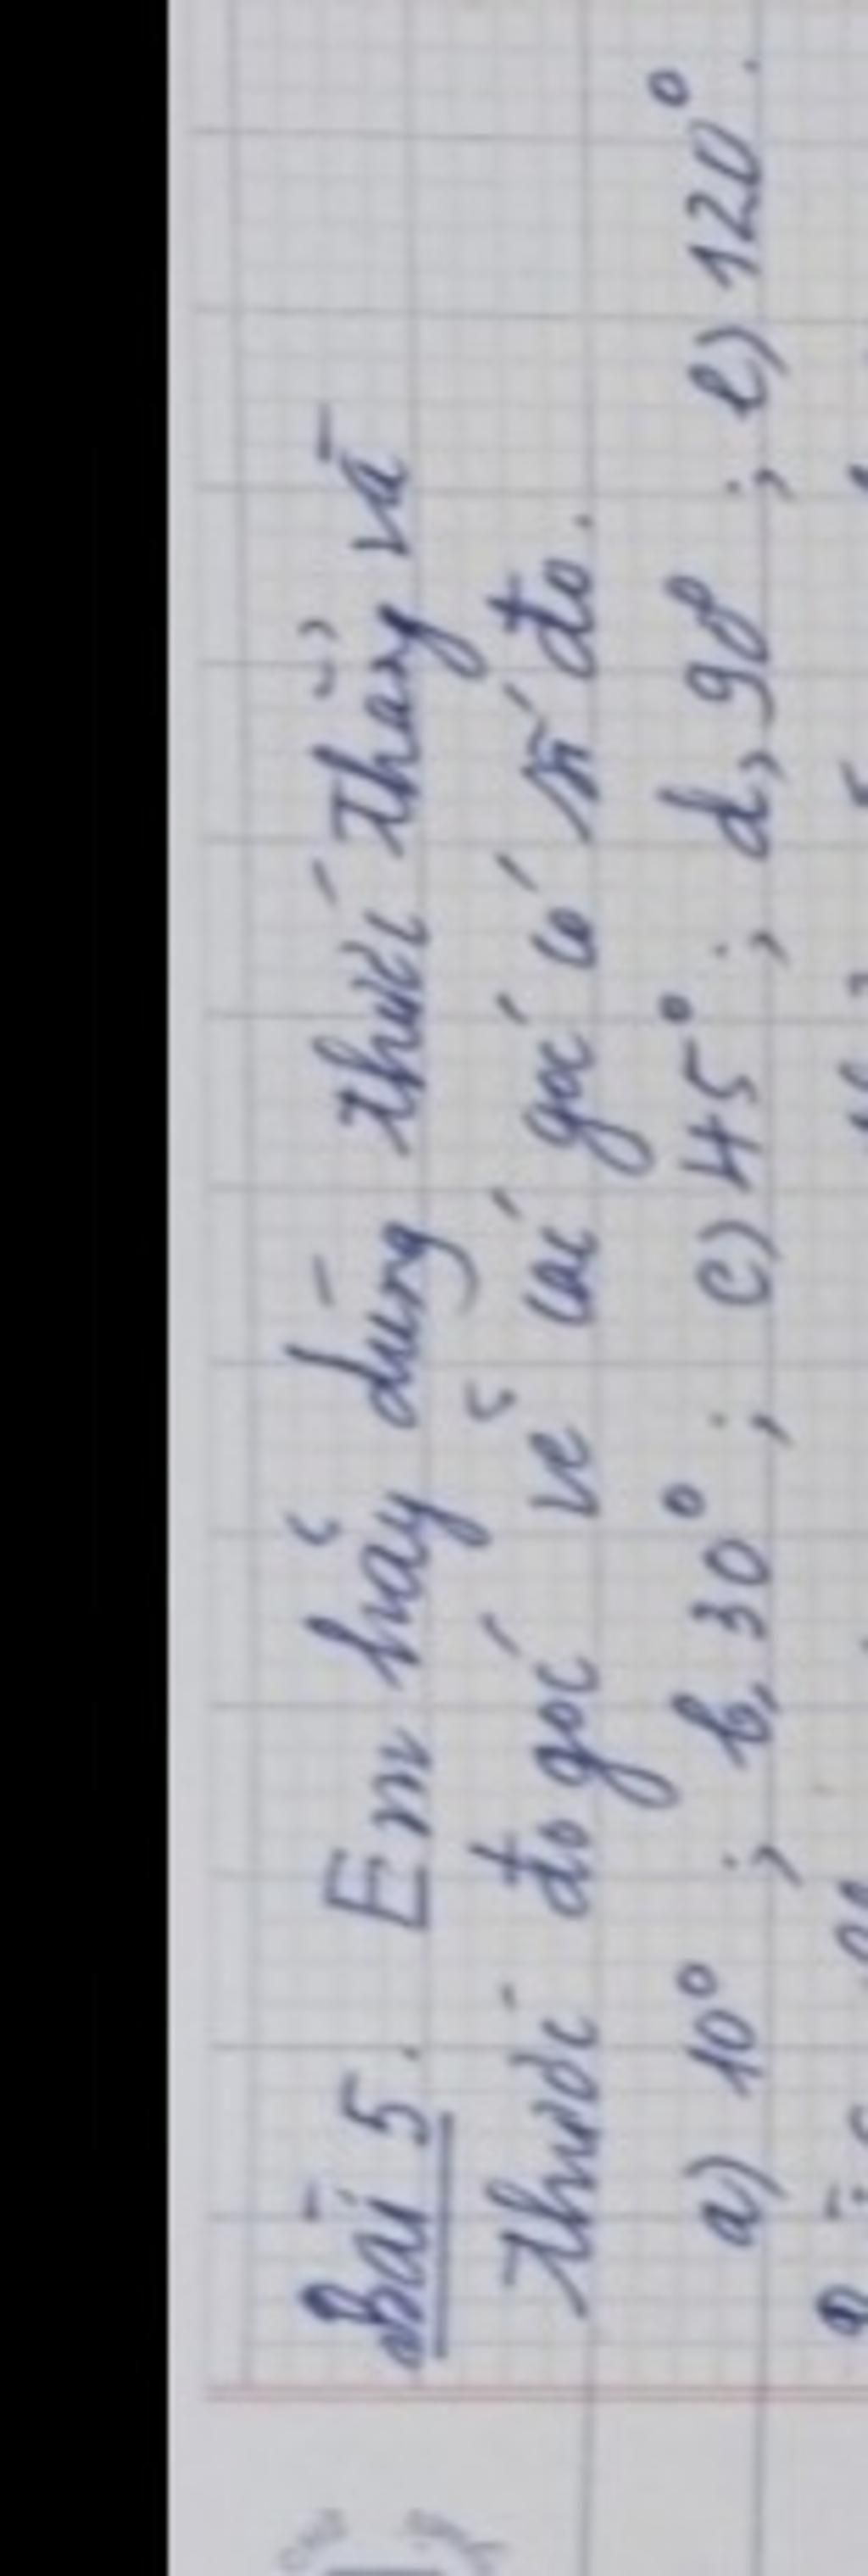 Bài 5. Em hãy dùng thước thẳng và
thước đo góc vẽ các góc có số đo.
a) 10° ; b, 30° ; c) 45° ; d, 90 ; e) 120°.